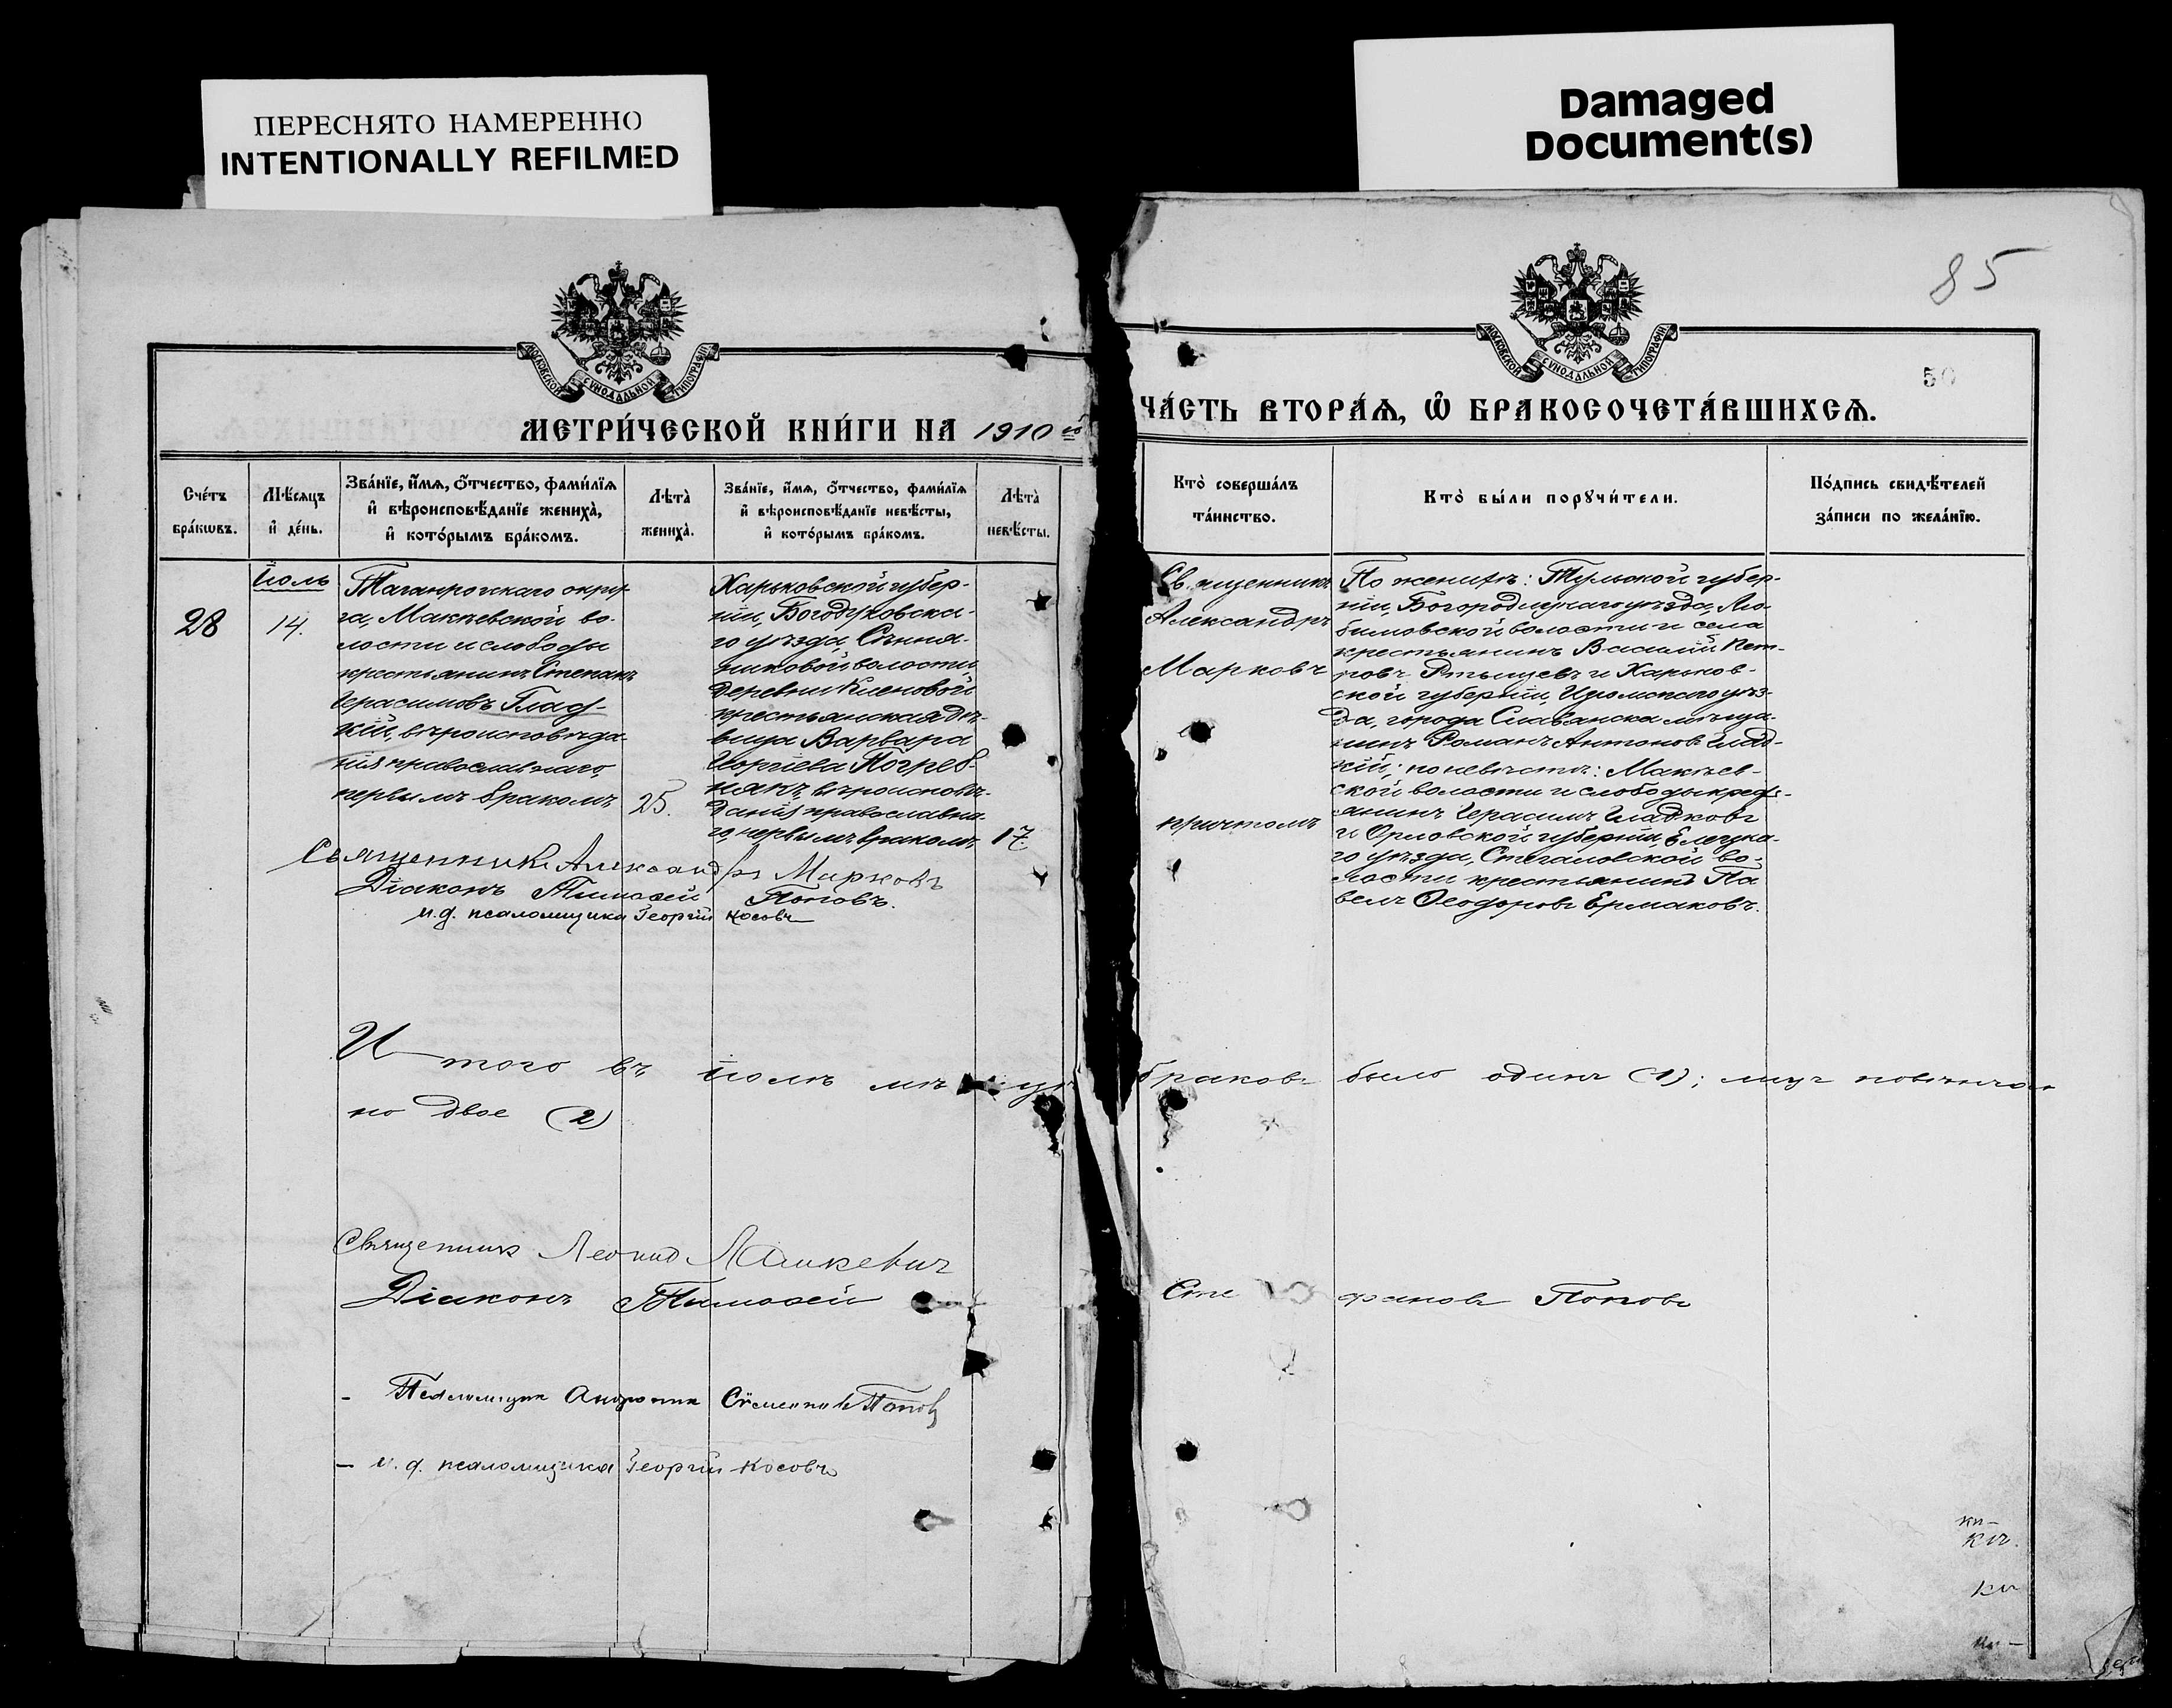 ПЕРЕСНЯТО НАМЕРЕННО
INTENTIONALLY REFILMED
Damaged
Document(s)
85
50
МОСКОВСКОЙ СѴНОДАЛЬНОЙ ТИПОГРАФІИ
МОСКОВСКОЙ СѴНОДАЛЬНОЙ ТИПОГРАФІИ
МЕТРИ́ЧЕСКОЙ КНИ́ГИ НА 1910 й
ЧА́СТЬ ВТОРА́Ѧ, Ѽ БРАКОСОЧЕТА́ВШИХСѦ.
Сче́тъ
бра́кѡвъ.
Мѣ́сяцъ
и҆ де́нь.
Зва́нїе, и҆́мѧ, ѻ҆́тчество, фами́лїѧ
и҆ вѣроисповѣ́данїе жениха̀,
и҆ кото́рымъ бра́комъ.
Лѣта̀
жениха̀.
Зва́нїе, и҆́мѧ, ѻ҆́тчество, фами́лїѧ
и҆ вѣроисповѣ́данїе невѣ́сты,
и҆ кото́рымъ бра́комъ.
Лѣта̀
невѣ́сты.
Кто̀ соверша́лъ
та́инство.
Кто̀ бы́ли порꙋчи́тели.
По́дпись свидѣ́телей
за́писи по жела́нїю.
28
Іюль
14.
Таганрогскаго окру-
га, Макѣевской во-
лости и слободы
крестьянинъ Степанъ
Герасимовъ Глад-
кій, вѣроисповѣда-
нія православнаго,
первымъ бракомъ
25.
Харьковской губер-
ніи, Богодуховска-
го уѣзда, Сѣння-
нковой волости,
деревни Кленовой
крестьянская дѣ-
вица Варвара
Георгіева Погреб-
някъ, вѣроисповѣ-
данія православна-
го, первымъ бракомъ
17.
Священникъ
Александръ
Марковъ
причтомъ
По женихѣ: Тульской губер-
ніи, Богородицкаго уѣзда, Лю-
бимовской волости и села
крестьянинъ Василій Пет-
ровъ Ртищевъ и Харьков-
ской губерніи, Изюмскаго уѣз-
да, города Славянска мѣща-
нинъ Романъ Антоновъ Глад-
кій; по невѣстѣ: Макѣев-
ской волости и слободы крест-
янинъ Герасимъ Гладковъ
и Орловской губерніи, Елецка-
го уѣзда, Стегаловской во-
лости крестьянинъ Па
велъ Ѳеодоровъ Ермаковъ.
Священникъ Александръ Марковъ
Діаконъ Тимоѳей Поповъ.
и.д. псаломщика Георгій Косовъ
Итого въ іюлѣ мѣсяцѣ браковъ было одинъ (1); лицъ повѣнча
но двое (2)
Священникъ Леонид
Діаконъ Тимоѳей Стефановъ Поповъ
- Псаломщикъ Андроник Сѵмеонов Попов
- и.д. псаломщика Георгій Косовъ